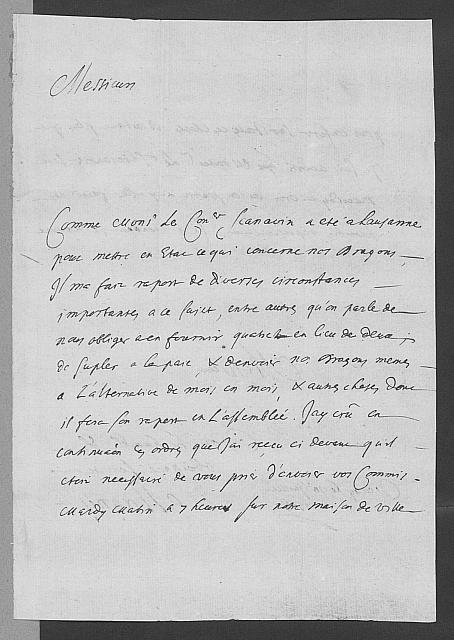 Messieurs
Comme Mons.r Le Con.er Scanavin a eté a Lausanne
pour mettre en Etat ce qui concerne nos Dragons,
Il ma fait raport de diverses circonstances
importantes a ce sujet, entre autres qu'on parle de
nous obliger a en fournir quatre en lieu de deux;
de supler a la paie, & d'envoier nos Dragons memes
a L'alternative de mois en mois, & autres choses dont
il fera son raport en L'assemblée. J'ay crû en
continuation es ordres que J'ai receu ci devant qu'il
etoit necessaire de vous prier d'envoier vos Commis
Mardy Matin a 7 heures sur notre maison de ville